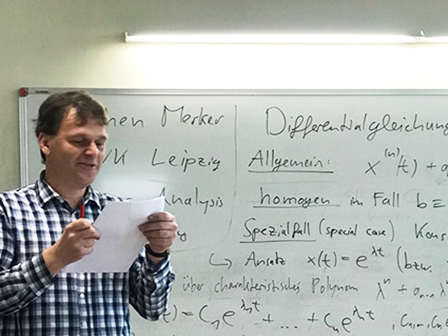 Merker
Leipzig
Analysis
Differentialgleichung
Allgemein: x⁽ⁿ⁾(t) + a
homogen im Fall b ≡
Spezialfall (special case) Kons
↳ Ansatz x(t) = e^λt (bzw.
über charakteristisches Polynom λⁿ + aₙ₋₁ λⁿ
(t) = C₁e^λ₁t + ... + Cₙe^λₙt